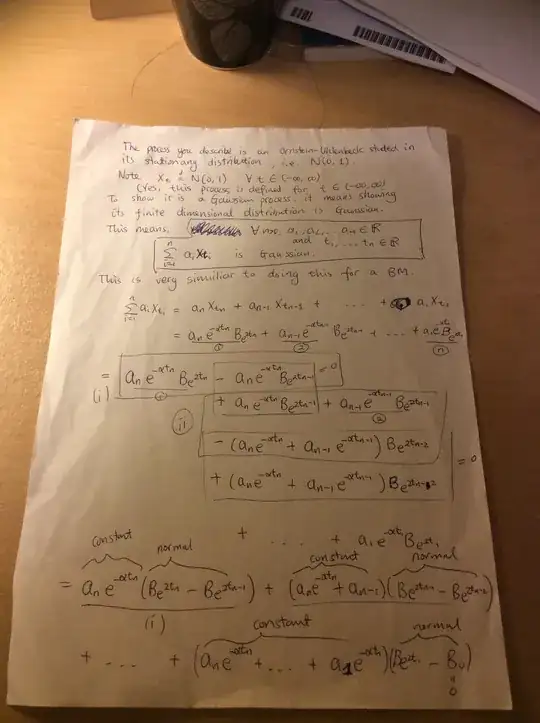 The process you describe is an Ornstein-Uhlenbeck started in
its stationary distribution, i.e. N(0,1).
Note, X_t =^d N(0,1) ∀ t ∈ (-∞,∞)
(Yes, this process is defined for t ∈ (-∞,∞))
To show it is a Gaussian process, it means showing
its finite dimensional distribution is Gaussian.
This means, ∀ n>0, a_1, a_2, ... a_n ∈ ℝ
and t_1, ... t_n ∈ ℝ
∑_{i=1}^n a_i X_{t_i} is Gaussian.
This is very similiar to doing this for a BM.
∑_{i=1}^n a_i X_{t_i} = a_n X_{t_n} + a_{n-1} X_{t_{n-1}} + ... + a_1 X_{t_1}
= a_n e^{-αt_n} B_{e^{2t_n}} + a_{n-1} e^{-αt_{n-1}} B_{e^{2t_{n-1}}} + ... + a_1 e^{-αt_1} B_{e^{2t_1}}
① ② ⓝ
= a_n e^{-αt_n} B_{e^{2t_n}} - a_n e^{-αt_n} B_{e^{2t_{n-1}}} = 0
(i) ①
+ a_n e^{-αt_n} B_{e^{2t_{n-1}}} + a_{n-1} e^{-αt_{n-1}} B_{e^{2t_{n-1}}}
(ii) ②
- (a_n e^{-αt_n} + a_{n-1} e^{-αt_{n-1}}) B_{e^{2t_{n-2}}}
= 0
+ (a_n e^{-αt_n} + a_{n-1} e^{-αt_{n-1}}) B_{e^{2t_{n-2}}}
+ ... + a_1 e^{-αt_1} B_{e^{2t_1}}
constant normal constant normal
= a_n e^{-αt_n} (B_{e^{2t_n}} - B_{e^{2t_{n-1}}}) + (a_n e^{-αt_n} + a_{n-1}) (B_{e^{2t_{n-1}}} - B_{e^{2t_{n-2}}})
(i)
constant normal
+ ... + (a_n e^{-αt_n} + ... + a_1 e^{-αt_1}) (B_{e^{2t_1}} - B_0)
"
0